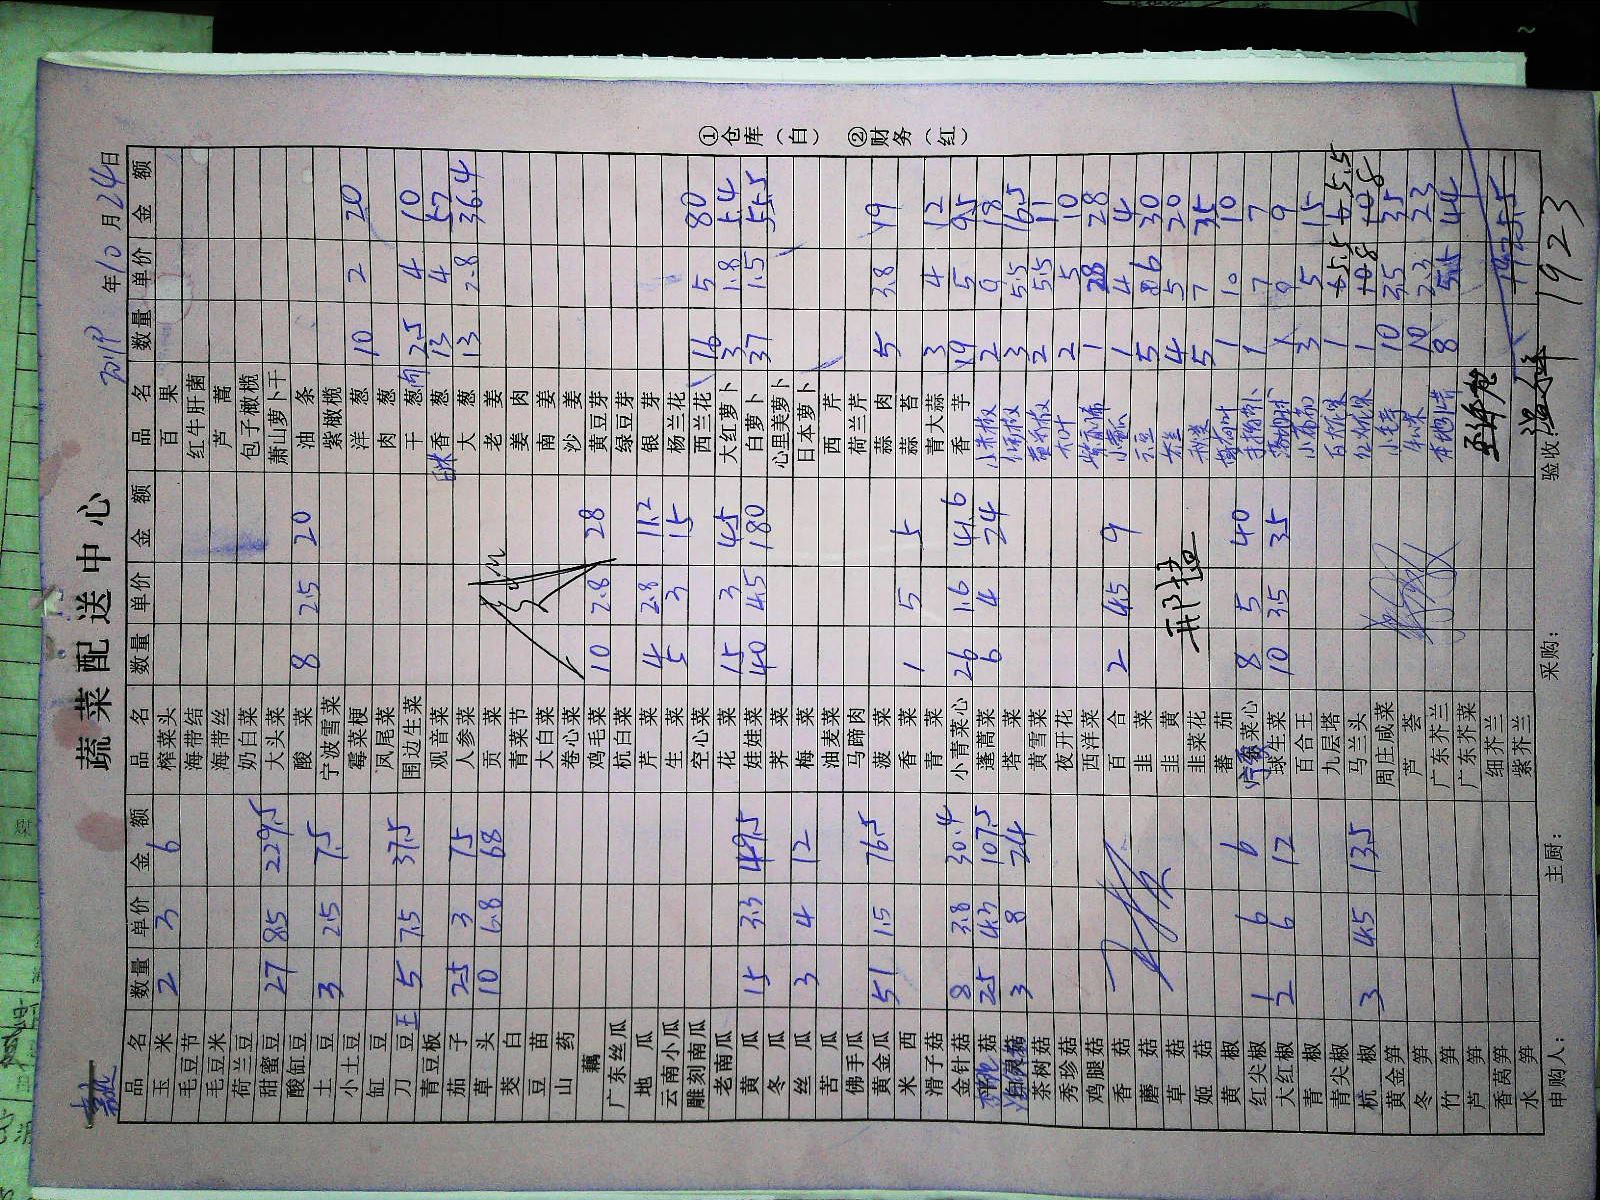 蔬菜配送中心
年10月24日
品名 数量 单价 金额 品名 数量 单价 金额 品名 数量 单价 金额
玉米 2 3 6 榨菜头 百果
毛豆节 海带结 红牛肝菌
毛豆米 海带丝 芦蒿
荷兰豆 奶白菜 包子橄榄
甜蜜豆 27 8.5 229.5 大头菜 萧山萝卜干
酸缸豆 酸菜 8 2.5 20 油条
土豆 3 2.5 7.5 宁波雪菜 紫橄榄
小土豆 霉菜梗 洋葱 10 2 20
缸豆 凤尾菜 肉葱
刀豆 王 5 7.5 37.5 围边生菜 干葱 2.5 4 10
青豆板 观音菜 香葱 13 4 52
茄子 25 3 75 人参菜 大葱 13 2.8 36.4
草头 10 6.8 68 贡菜 老姜
茭白 青菜节 姜肉
豆苗 大白菜 南姜
山药 卷心菜 沙姜
藕 鸡毛菜 10 2.8 28 黄豆芽
广东丝瓜 杭白菜 绿豆芽
地瓜 芹菜 4 2.8 11.2 银芽
云南小瓜 生菜 5 3 15 杨兰花
雕刻南瓜 空心菜 西兰花 16 5 80
老南瓜 花菜 15 3 45 大红萝卜 3 1.8 5.4
黄瓜 15 3.3 49.5 娃娃菜 40 4.5 180 白萝卜 37 1.5 55.5
冬瓜 荠菜 心里美萝卜
丝瓜 3 4 12 梅菜 日本萝卜
苦瓜 油麦菜 西芹
佛手瓜 马蹄肉 荷兰芹
黄金瓜 51 1.5 76.5 菠菜 蒜肉 5 3.8 19
西米 香菜 1 5 5 蒜苔
滑子菇 青菜 青大蒜 3 4 12
金针菇 8 3.8 30.4 小青菜心 26 1.6 41.6 香芋 19 5 95
菇 25 4.3 107.5 蓬蒿菜 6 4 24 小米椒 2 9 18
白灵菇 3 8 24 塔菜 红美椒 3 5.5 16.5
茶树菇 黄雪菜 黄美椒 2 5.5 11
秀珍菇 夜开花 2 5 10
鸡腿菇 西洋菜 1 28 28
香菇 百合 2 4.5 9 1 4 4
蘑菇 韭菜 5 6 30
草菇 韭黄 4 5 20
姬菇 韭菜花 5 7 35
黄椒 蕃茄 薄荷叶 1 10 10
红尖椒 1 6 6 菜心 8 5 40 1 7 7
大红椒 2 6 12 球生菜 10 3.5 35 1 9 9
青椒 百合王 3 5 15
青尖椒 九层塔 1 5.5 5.5
杭椒 3 4.5 13.5 马兰头 1 8 8
黄金笋 周庄咸菜 10 3.5 35
冬笋 芦荟 10 2.3 23
竹笋 广东芥兰 8 5.5 44
芦笋 广东芥菜
香莴笋 细芥兰 1925.5
水笋 紫芥兰
申购人： 主厨： 采购： 验收： 1923
①仓库（白） ②财务（红）